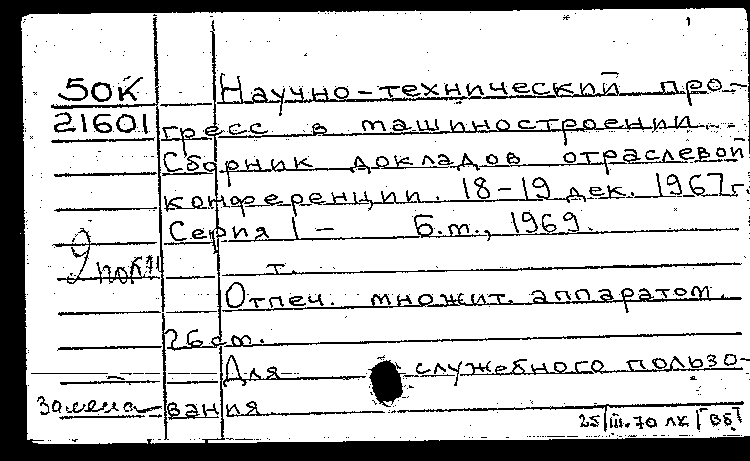 50К Научно-технический про-
21601 гресс в машиностроении...
Сборник докладов отраслевой
конференции. 18-19 дек. 1967г.
Серия 1 - Б.т., 1969.
т.
Отпеч. множит. аппаратом.
26см.
Для служебного пользо-
Замена вания
25/III.70 ЛК